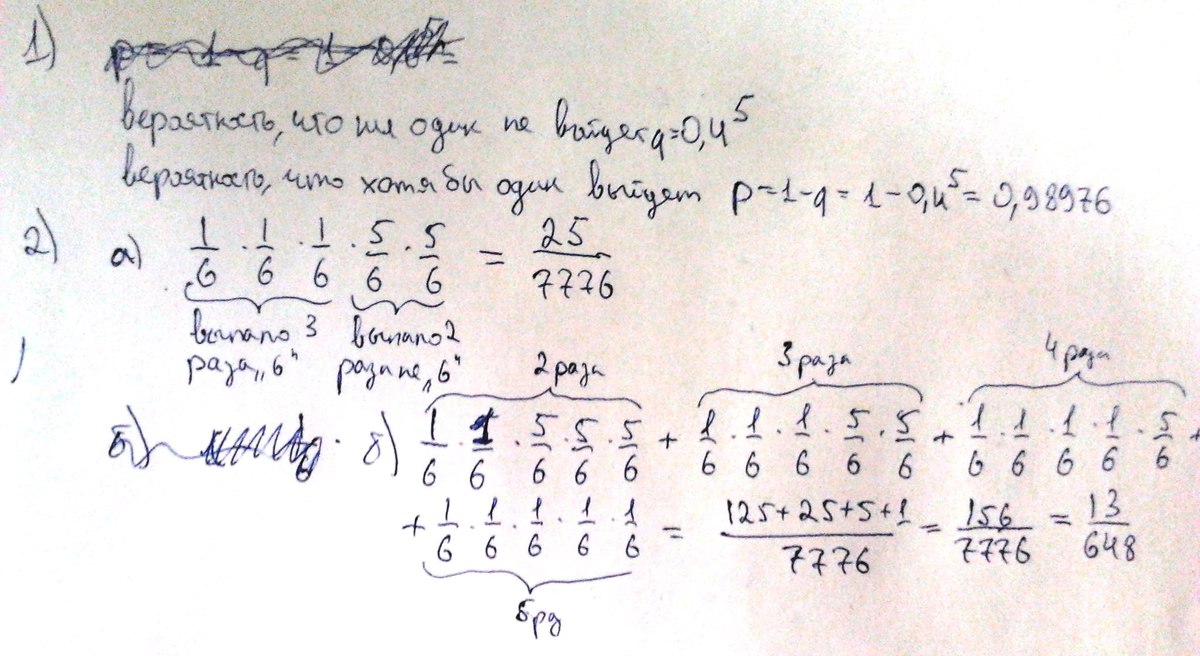 1)
вероятность, что ни один не выйдет q=0,4⁵
вероятность, что хотя бы один выйдет p=1-q=1-0,4⁵=0,98976
2) а) 1/6 · 1/6 · 1/6 · 5/6 · 5/6 = 25/7776
выпало 3 раза „6“ выпало 2 раза не „6“
2 раза 3 раза 4 раза
б) б) 1/6 · 1/6 · 5/6 · 5/6 · 5/6 + 1/6 · 1/6 · 1/6 · 5/6 · 5/6 + 1/6 · 1/6 · 1/6 · 1/6 · 5/6 +
+ 1/6 · 1/6 · 1/6 · 1/6 · 1/6 = 125+25+5+1/7776 = 156/7776 = 13/648